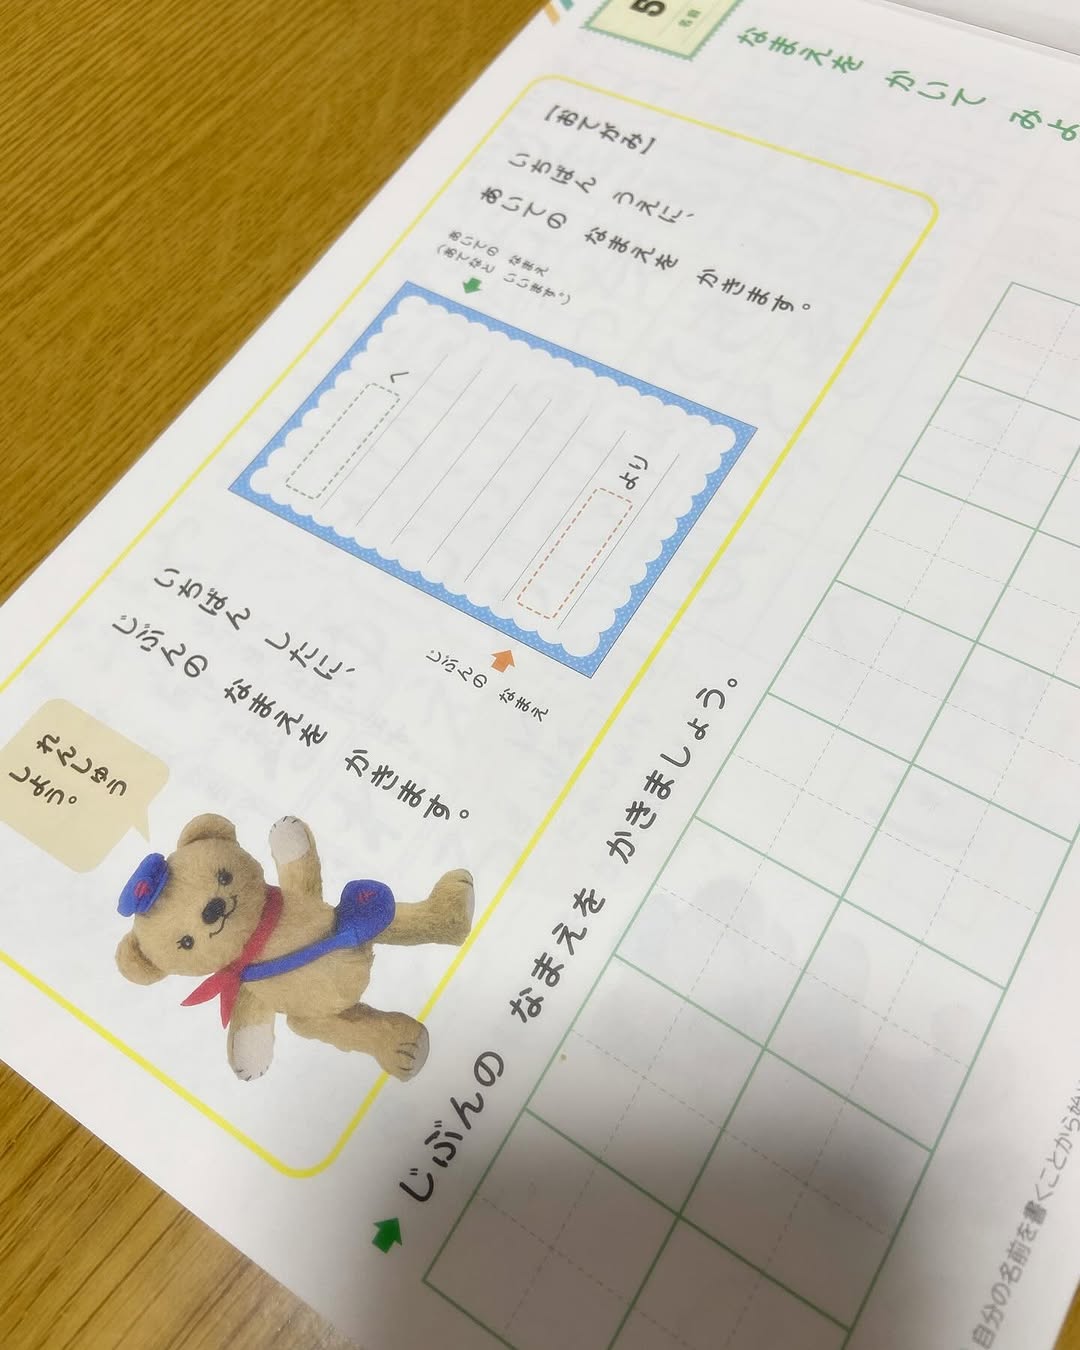 5
名前
なまえを かいて みよ
【おてがみ】
いちばん うえに、
あいての なまえを かきます。
あいての なまえ
(あてなと いいます。)
へ
より
じぶんの なまえ
いちばん したに、
じぶんの なまえを かきます。
れんしゅう
しよう。
じぶんの なまえを かきましょう。
自分の名前を書くことから始